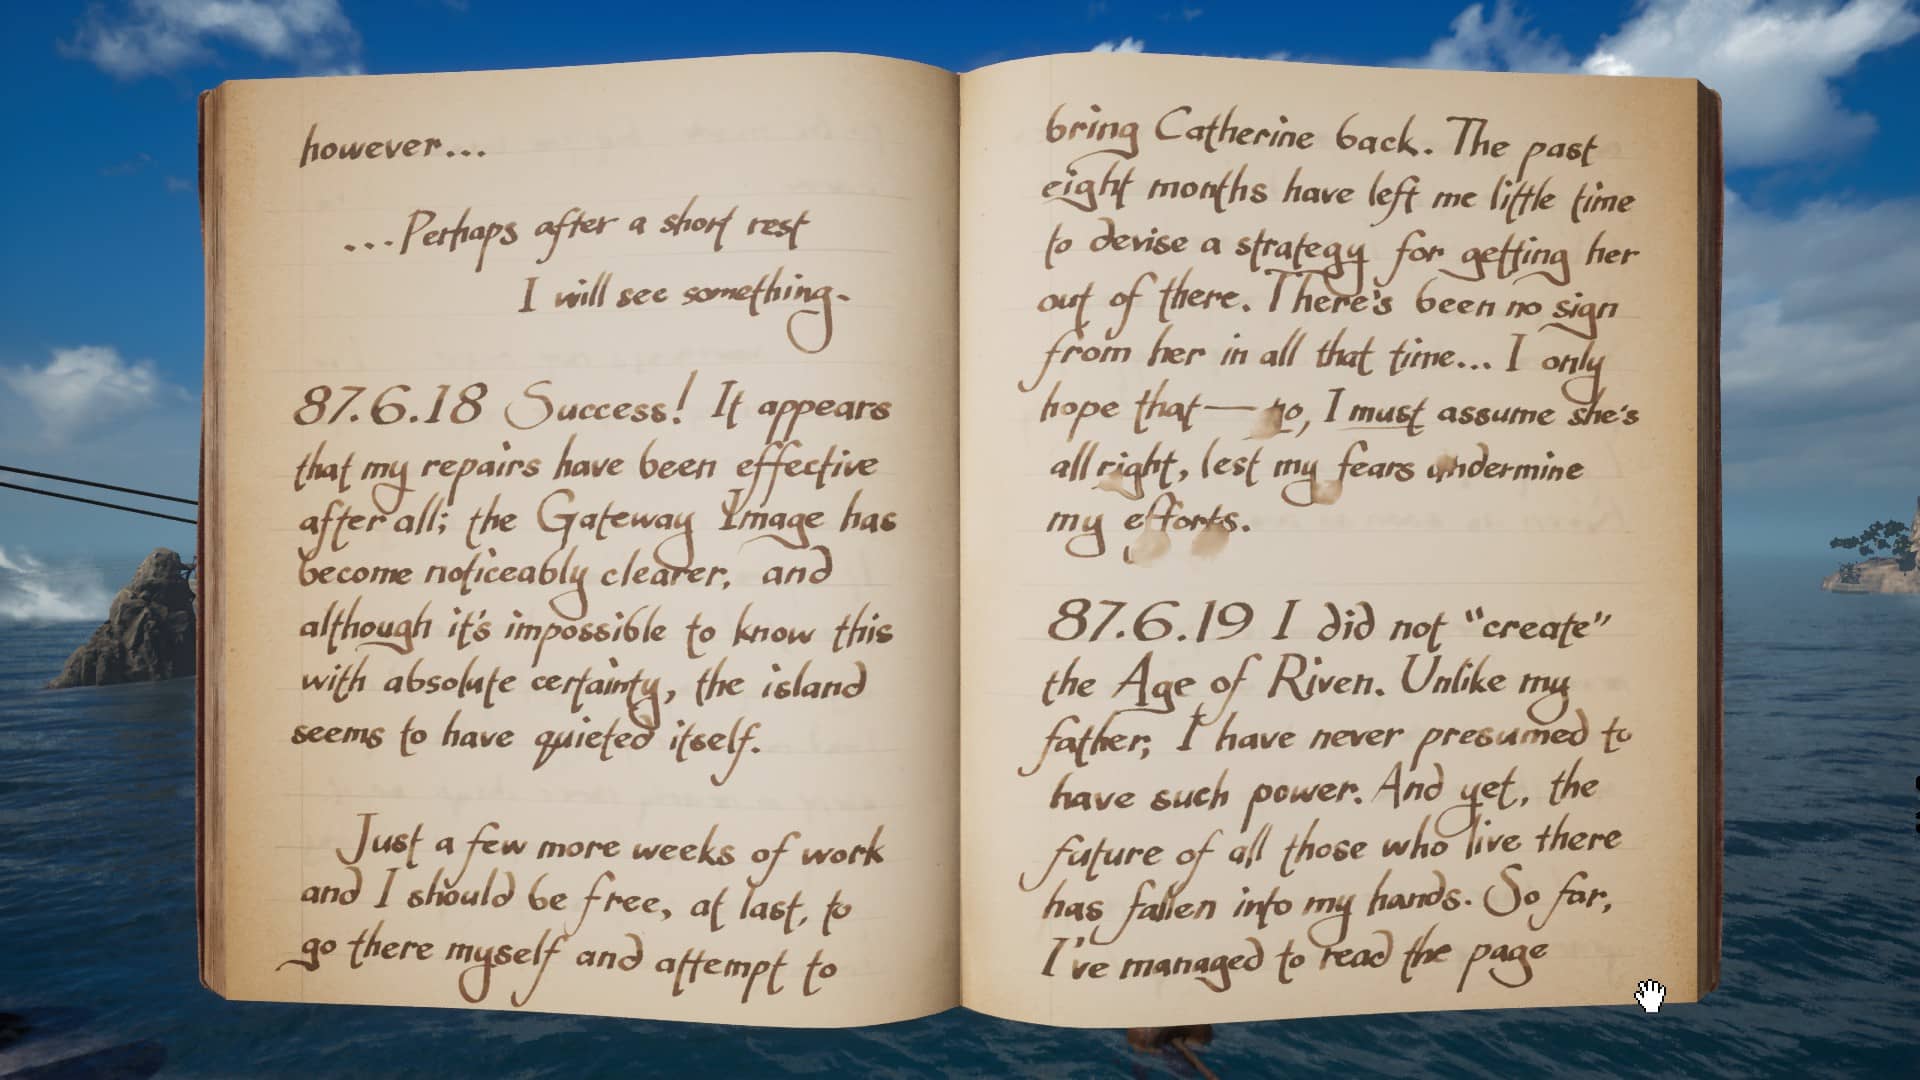 however...
...Perhaps after a short rest
I will see something.
87.6.18 Success! It appears
that my repairs have been effective
after all; the Gateway Image has
become noticeably clearer, and
although it's impossible to know this
with absolute certainty, the island
seems to have quieted itself.
Just a few more weeks of work
and I should be free, at last, to
go there myself and attempt to
bring Catherine back. The past
eight months have left me little time
to devise a strategy for getting her
out of there. There's been no sign
from her in all that time... I only
hope that — no, I must assume she's
all right, lest my fears undermine
my efforts.
87.6.19 I did not "create"
the Age of Riven. Unlike my
father, I have never presumed to
have such power. And yet, the
future of all those who live there
has fallen into my hands. So far,
I've managed to read the page